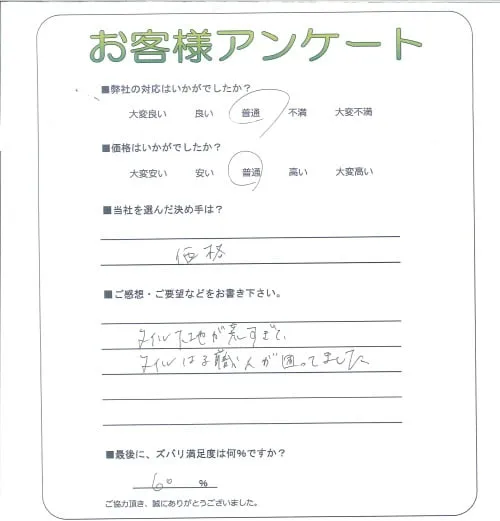 お客様アンケート
■弊社の対応はいかがでしたか？
大変良い 良い 普通 不満 大変不満
■価格はいかがでしたか？
大変安い 安い 普通 高い 大変高い
■当社を選んだ決め手は？
価格
■ご感想・ご要望などをお書き下さい。
タイル下地が荒すぎて、
タイルはる職人が困ってました
■最後に、ズバリ満足度は何%ですか？
60 %
ご協力頂き、誠にありがとうございました。